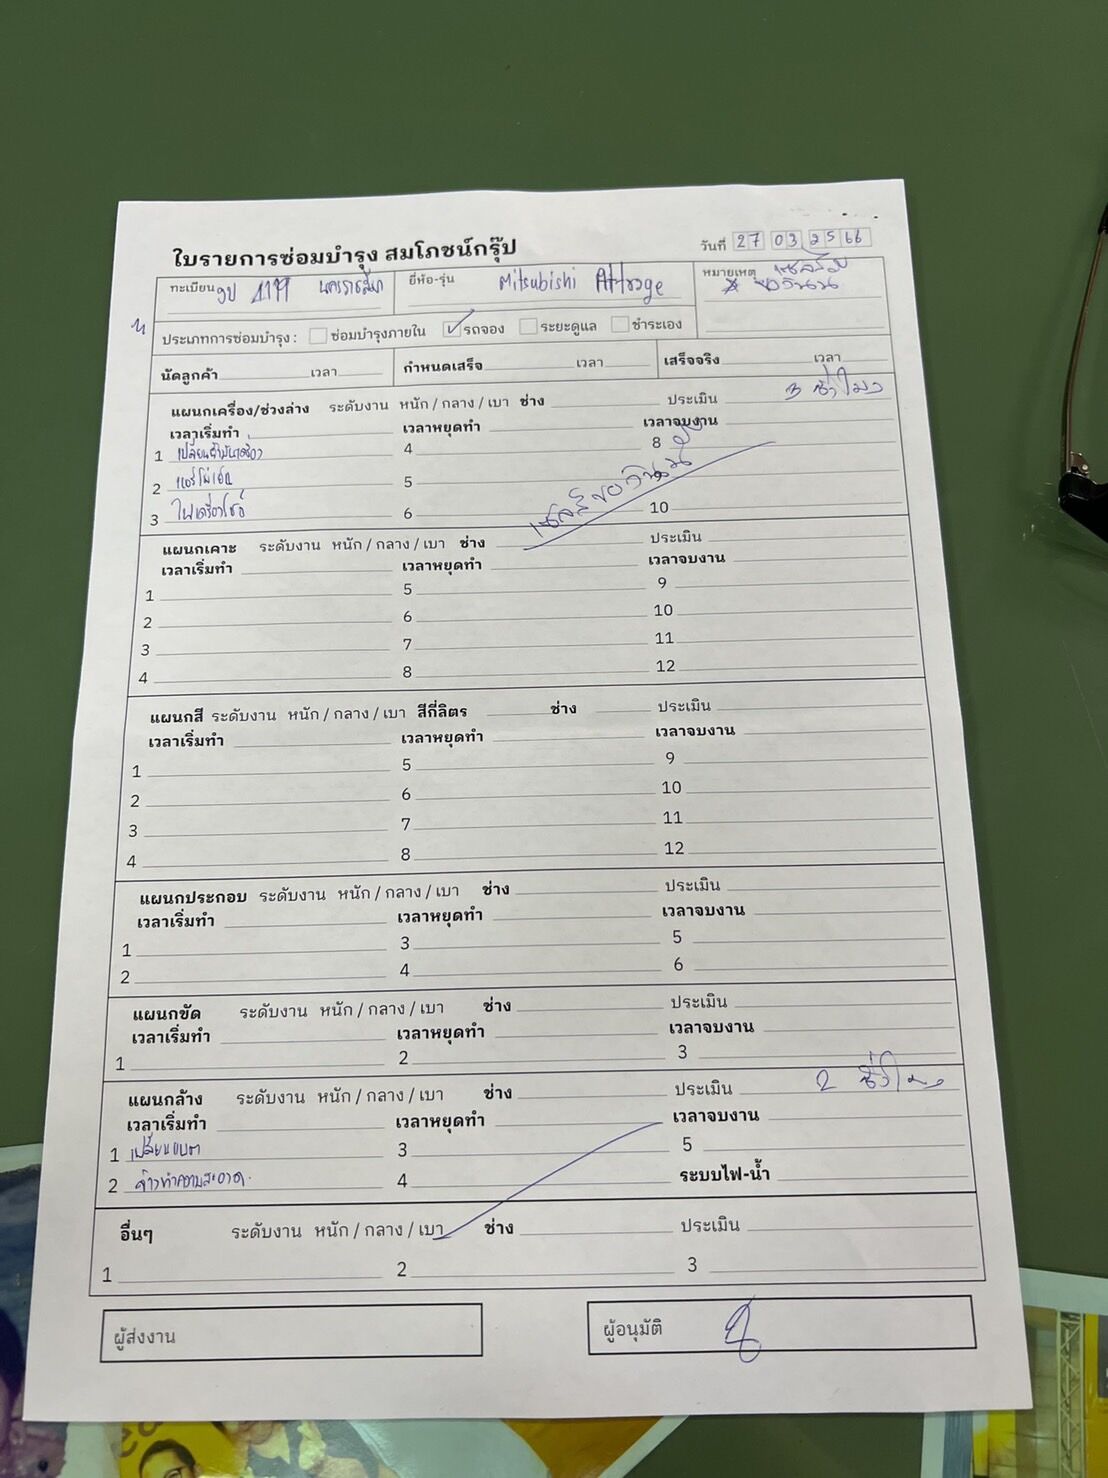 ใบรายการซ่อมบำรุง สมโภชน์กรุ๊ป
วันที่ 27 03 2566
ทะเบียน 1177 นครราชสีมา ยี่ห้อ-รุ่น Mitsubishi Attrage หมายเหตุ
ประเภทการซ่อมบำรุง : ซ่อมบำรุงภายใน ✓ รถจอง ระยะดูแล ชำระเอง
นัดลูกค้า เวลา กำหนดเสร็จ เวลา เสร็จจริง เวลา
แผนกเครื่อง/ช่วงล่าง ระดับงาน หนัก / กลาง / เบา ช่าง ประเมิน 3 ชั่วโมง
เวลาเริ่มทำ เวลาหยุดทำ เวลาจบงาน
1 เปลี่ยนน้ำมันเครื่อง 4 8
2 5
3 ไฟเครื่องโชว์ 6 10
แผนกเคาะ ระดับงาน หนัก / กลาง / เบา ช่าง ประเมิน
เวลาเริ่มทำ เวลาหยุดทำ เวลาจบงาน
1 5 9
2 6 10
3 7 11
4 8 12
แผนกสี ระดับงาน หนัก / กลาง / เบา สีกี่ลิตร ช่าง ประเมิน
เวลาเริ่มทำ เวลาหยุดทำ เวลาจบงาน
1 5 9
2 6 10
3 7 11
4 8 12
แผนกประกอบ ระดับงาน หนัก / กลาง / เบา ช่าง ประเมิน
เวลาเริ่มทำ เวลาหยุดทำ เวลาจบงาน
1 3 5
2 4 6
แผนกขัด ระดับงาน หนัก / กลาง / เบา ช่าง ประเมิน
เวลาเริ่มทำ เวลาหยุดทำ เวลาจบงาน
1 2 3
แผนกล้าง ระดับงาน หนัก / กลาง / เบา ช่าง ประเมิน 2 ชั่วโมง
เวลาเริ่มทำ เวลาหยุดทำ เวลาจบงาน
1 เปลี่ยนแบต 3 5
2 ล้างทำความสะอาด 4 ระบบไฟ-น้ำ
อื่นๆ ระดับงาน หนัก / กลาง / เบา ช่าง ประเมิน
1 2 3
ผู้ส่งงาน ผู้อนุมัติ